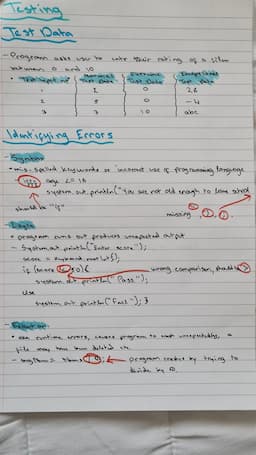 Testing
Test Data
- Program asks user to enter their rating of a film
between 0 and 10
• Test input no Normal Test Data Extreme Test Data Exceptional Test Data
1 2 0 26
2 5 0 -4
3 7 10 abc
Identifying Errors
- Syntax
• mis-spelled keywords or incorrect use of programming language
age <= 18
System.out.println("You are not old enough to leave school
should be "if"
missing " ) ;
- Logic
• program runs but produces unexpected output
- System.out.println("Enter score");
score = keyboard.nextInt();
if (score < 50) {
wrong comparison, should be >
system.out.println("Pass");
else
system.out.println("Fail"); }
- Execution
• runtime errors, causes program to
file may have been deleted etc
program crashes by trying to
divide by 0.